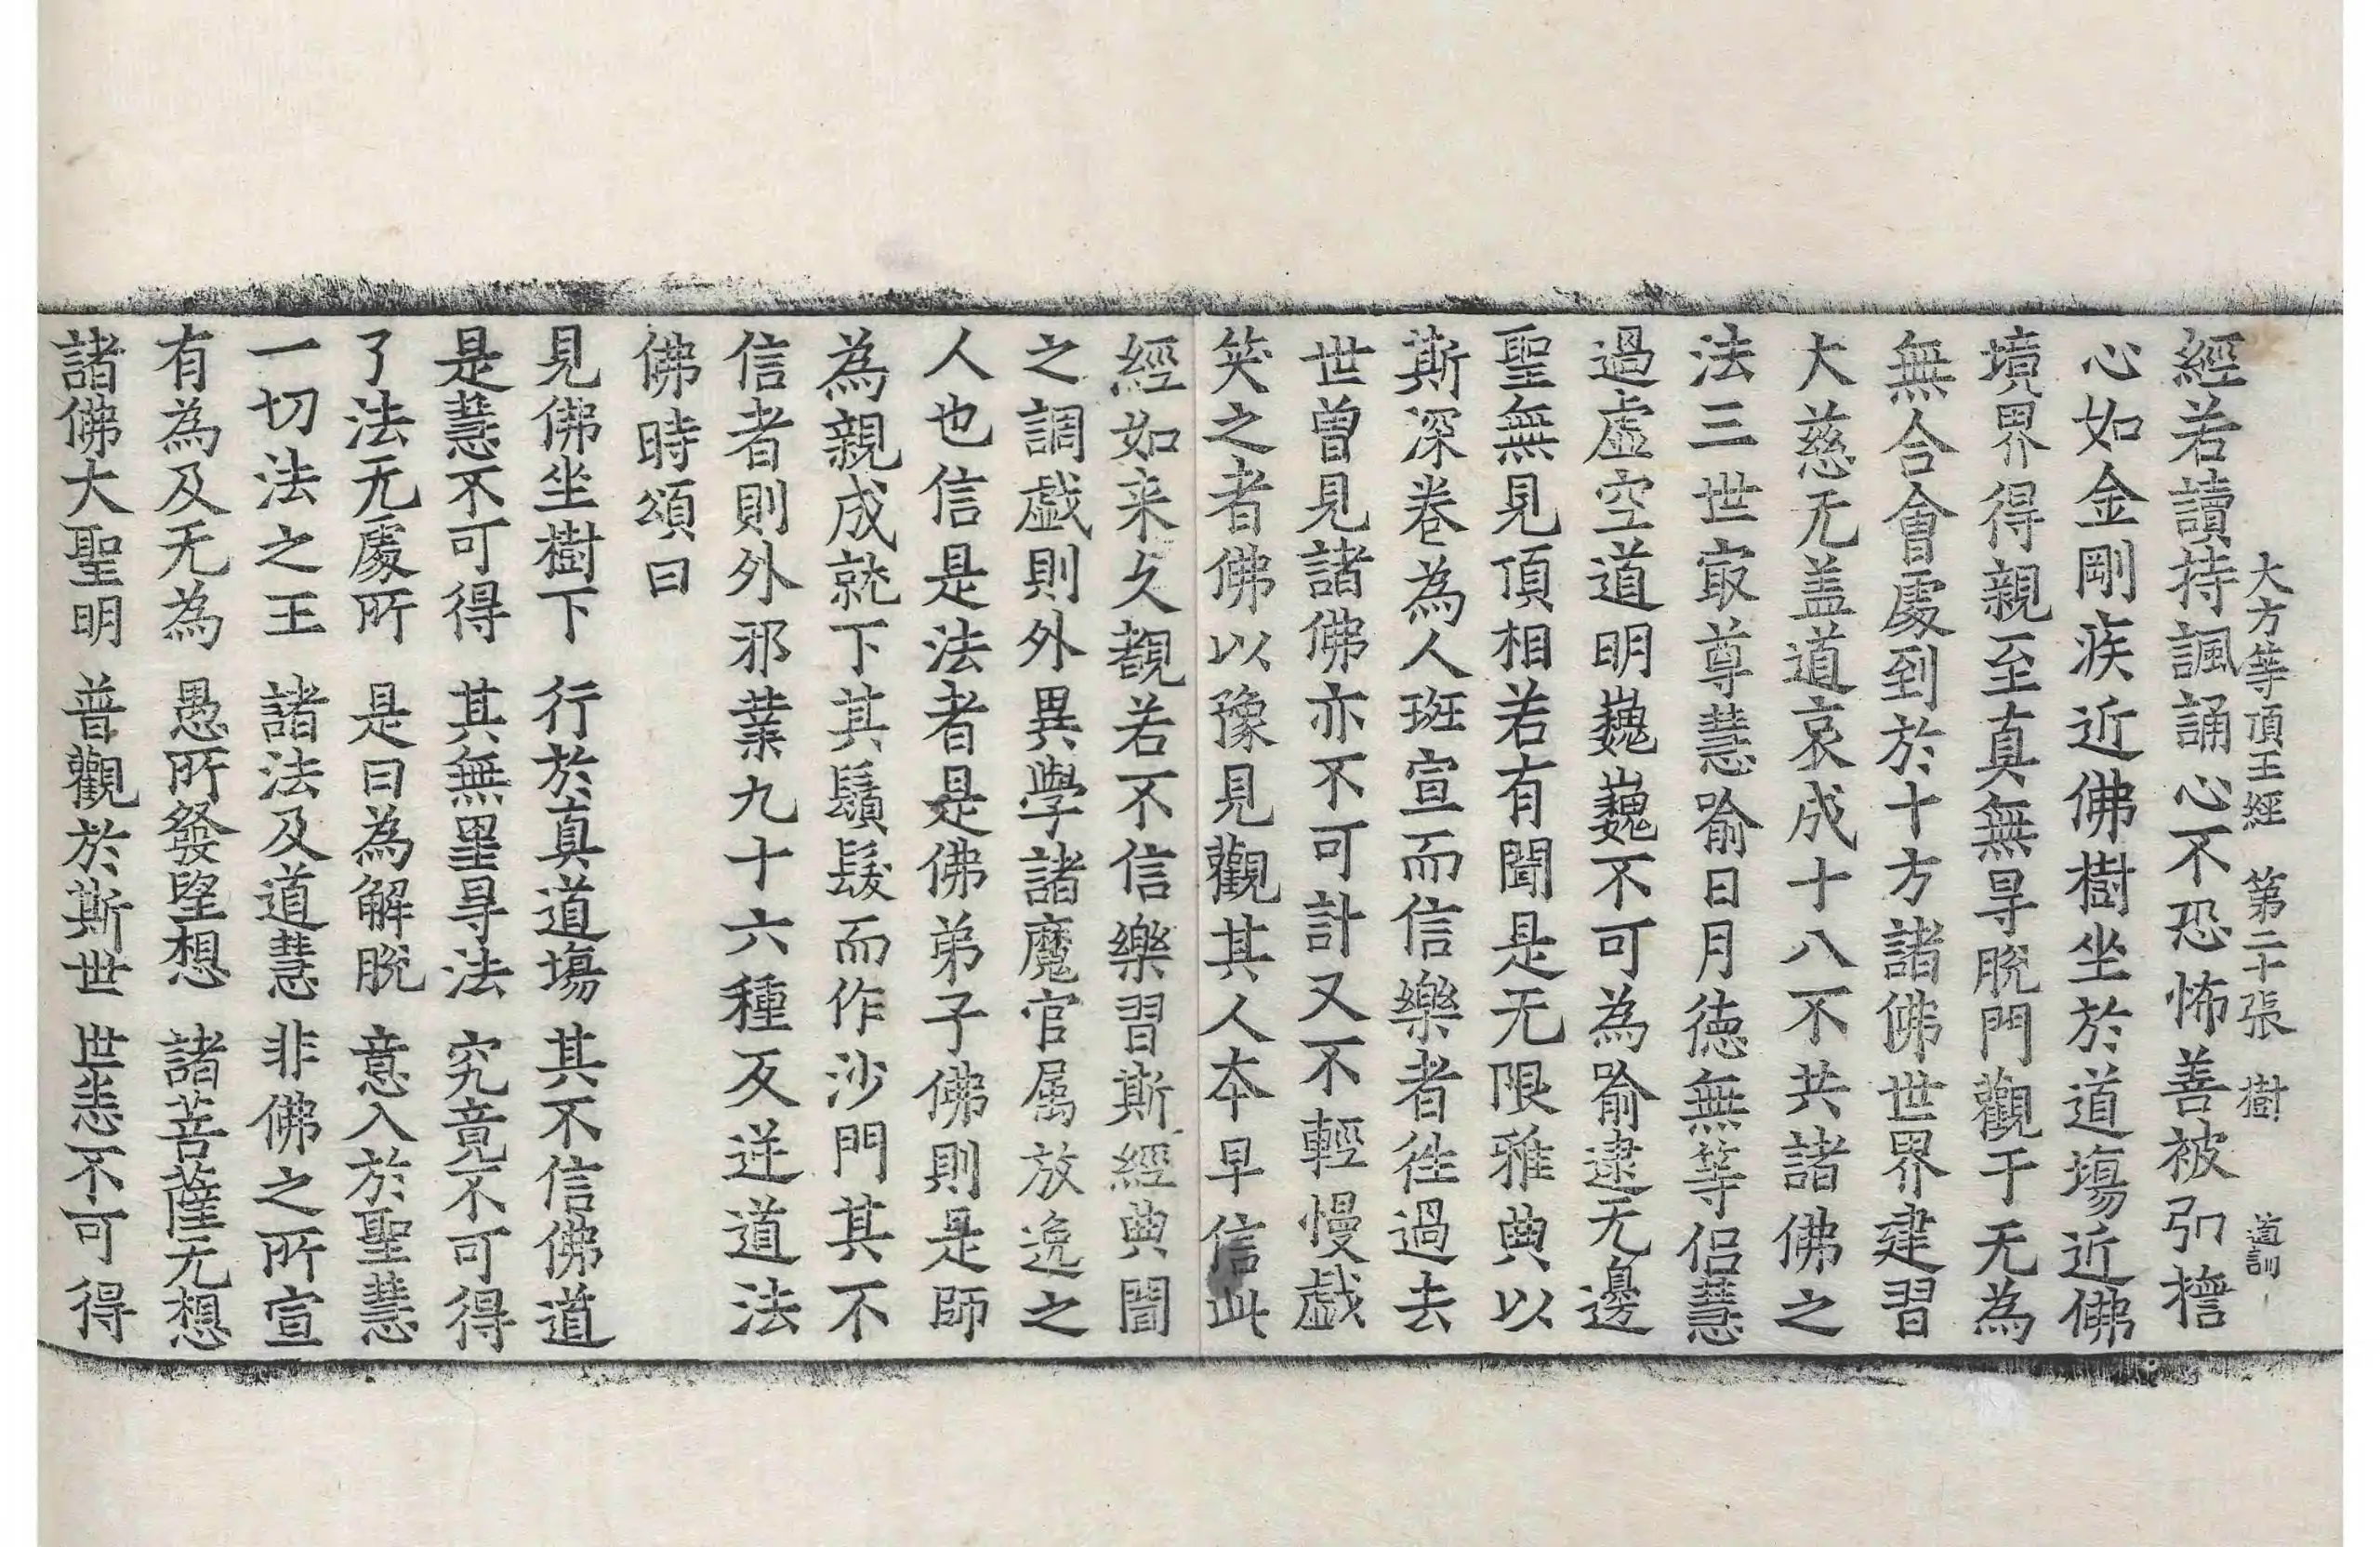 大方等頂王經 第二十張 樹 道訓
經若讀持諷誦心不恐怖善被弘㯓
心如金剛疾近佛樹坐於道場近佛
境界得親至真無㝵脫門觀于无為
無合會處到於十方諸佛世界建習
大慈无盖道哀成十八不共諸佛之
法三世㝡尊慧喻日月德無等侶慧
過虛空道明巍巍不可為喻逮无邊
聖無見頂相若有聞是无限雅典以
斯深卷為人班宣而信樂者徃過去
世曽見諸佛亦不可計又不輕慢戱
笑之者佛以豫見觀其人本早信此
經如来久覩若不信樂習斯經典闇
之調戱則外異學諸魔官属放逸之
人也信是法者是佛弟子佛則是師
為親成就下其鬚髮而作沙門其不
信者則外邪業九十六種反逆道法
佛時頌曰
見佛坐樹下 行於真道場 其不信佛道
是慧不可得 其無罣㝵法 究竟不可得
了法无處所 是曰為解脫 意入於聖慧
一切法之王 諸法及道慧 非佛之所宣
有為及无為 愚所發望想 諸菩薩无想
諸佛大聖明 普觀於斯世 世恚不可得